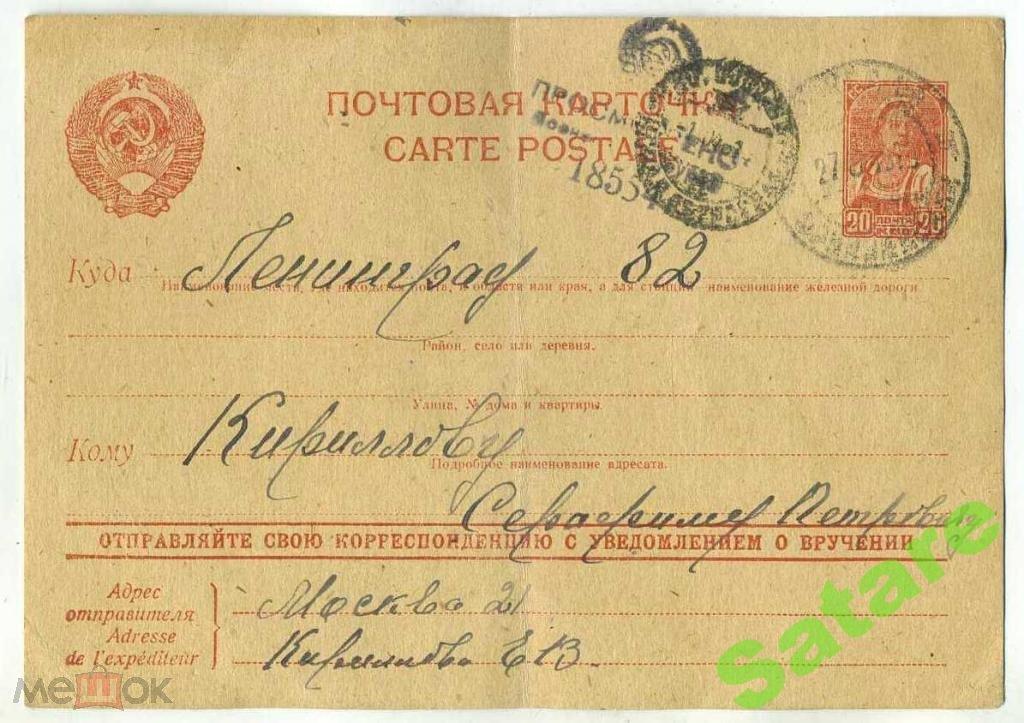 ПОЧТОВАЯ КАРТОЧКА
CARTE POSTALE
ПРОСМОТРЕНО
1853
27
20 ПОЧТА 20
СССР
Куда Ленинград 82
Наименование места, где находится почта, и области или края, а для станций наименование железной дороги
Район, село или деревня.
Улица, № дома и квартиры.
Кому Кириллову
Подробное наименование адресата.
Серафиму Петровичу
ОТПРАВЛЯЙТЕ СВОЮ КОРРЕСПОНДЕНЦИЮ С УВЕДОМЛЕНИЕМ О ВРУЧЕНИИ
Адрес
отправителя
Adresse
de l'expéditeur
Москва 21
Кириллова Е В.
Satare
мешок